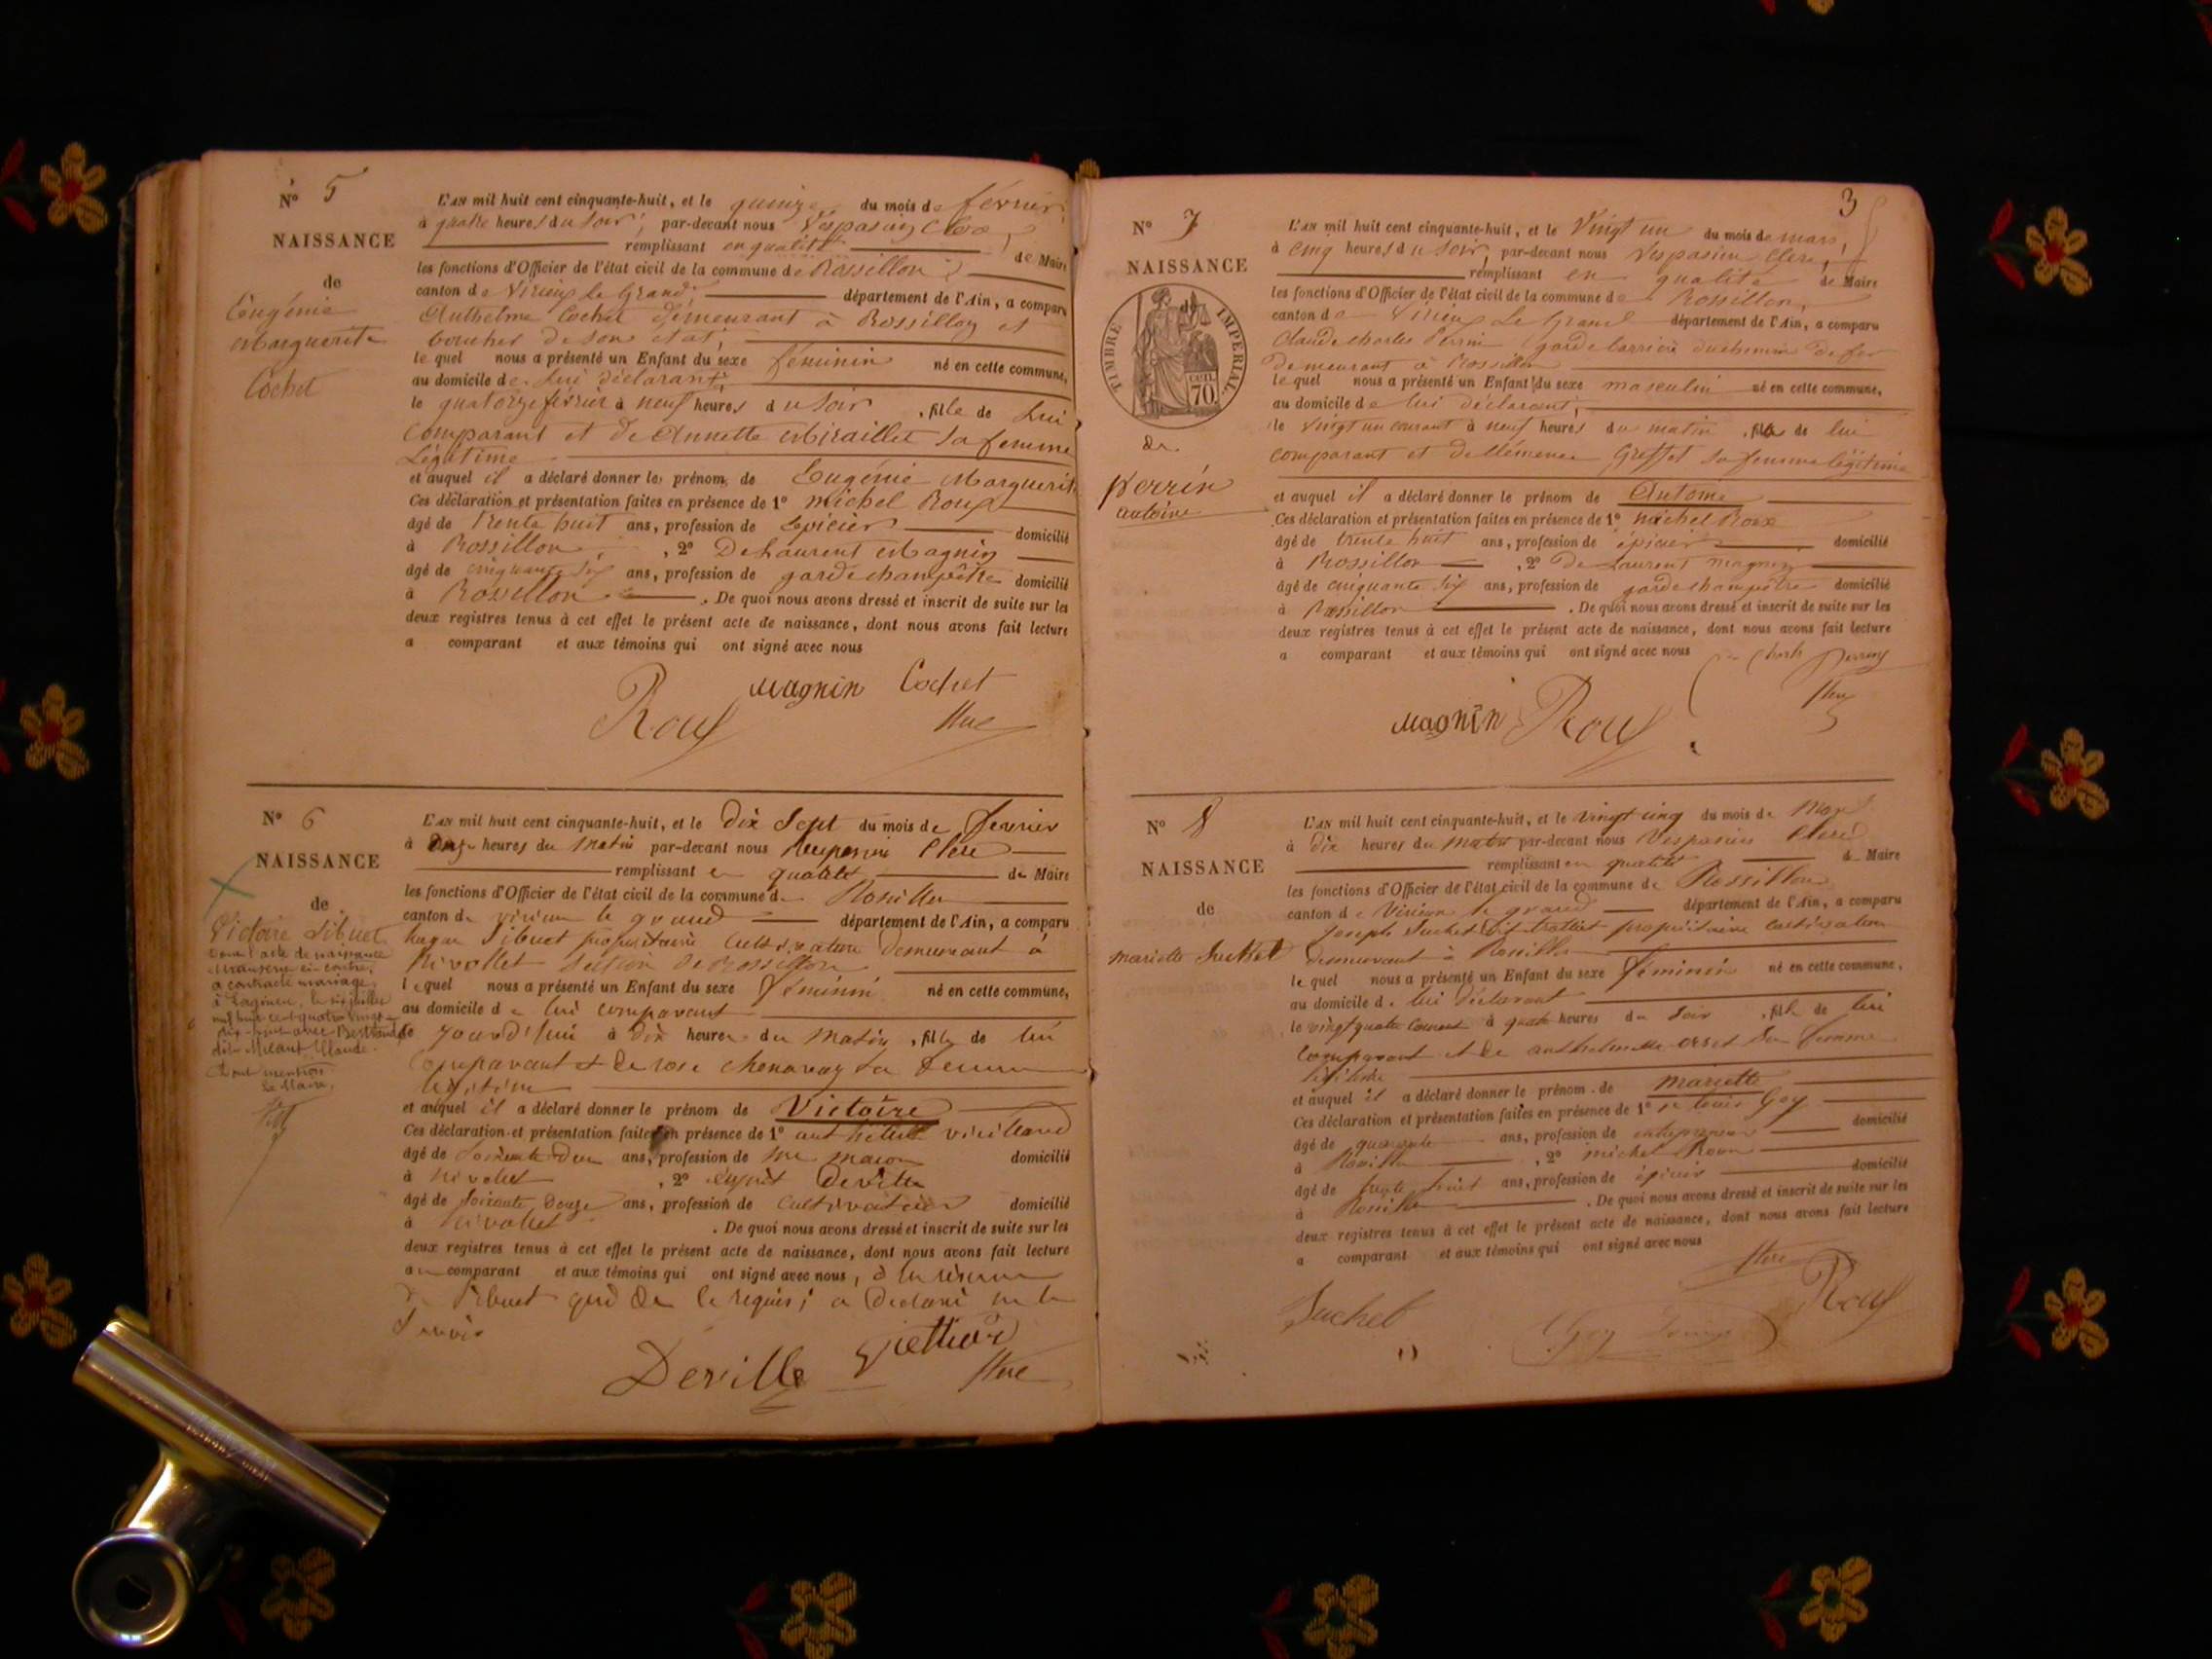 N° 5
NAISSANCE
de
Eugénie
Marguerite
Cochet
L'AN mil huit cent cinquante-huit, et le quinze du mois de février
à quatre heures du soir, par-devant nous Vespasien Clerc,
remplissant en qualité de Maire
les fonctions d'Officier de l'état civil de la commune de Rossillon
canton de Virieu Le Grand département de l'Ain, a comparu
Anthelme Cochet demeurant à Rossillon et
boucher de son état,
lequel nous a présenté un Enfant du sexe féminin né en cette commune,
au domicile de lui déclarant,
le quatorze février à neuf heures du soir, fille de Lui
Comparant et de Annette Miraillet sa femme
Légitime
et auquel il a déclaré donner le prénom de Eugénie Marguerite
Ces déclaration et présentation faites en présence de 1° Michel Roux
âgé de trente huit ans, profession de Épicier domicilié
à Rossillon, 2° De Laurent Magnin
âgé de cinquante six ans, profession de garde champêtre domicilié
à Rossillon. De quoi nous avons dressé et inscrit de suite sur les
deux registres tenus à cet effet le présent acte de naissance, dont nous avons fait lecture
a comparant et aux témoins qui ont signé avec nous
Magnin Cochet
Roux
N° 6
NAISSANCE
de
Victoire Sibuet
Dont l'acte de naissance
transcrit ci-contre,
a contracté mariage
à Lagnieu, le six juillet
mil huit cent quatre vingt
avec
dit Claude
Dont mention
Le Maire,
L'AN mil huit cent cinquante-huit, et le Dix Sept du mois de fevrier
à heures du Matin par-devant nous Vespasien Clerc
remplissant en qualité de Maire
les fonctions d'Officier de l'état civil de la commune de Rossillon
canton de virieu le grand département de l'Ain, a comparu
Sibuet propriétaire Cultivateur Demeurant à
Nivollet Section de Rossillon
lequel nous a présenté un Enfant du sexe féminin né en cette commune,
au domicile de lui comparant
le jourd'hui à dix heures du Matin, fille de lui
Comparant et de rose chenavay sa femme
légitime
et auquel il a déclaré donner le prénom de Victoire
Ces déclaration et présentation faites en présence de 1°
âgé de Soixante Deux ans, profession de maçon domicilié
à Nivollet, 2° Deville
âgé de Soixante Douze ans, profession de Cultivateur domicilié
à Nivollet. De quoi nous avons dressé et inscrit de suite sur les
deux registres tenus à cet effet le présent acte de naissance, dont nous avons fait lecture
au comparant et aux témoins qui ont signé avec nous, à la réserve
de Sibuet qui De ce requis, a Déclaré ne le
Savoir
Deville
3
N° 7
NAISSANCE
TIMBRE IMPÉRIAL
70
de
perrin
antoine
L'AN mil huit cent cinquante-huit, et le Vingt un du mois de mars,
à cinq heures du soir, par-devant nous Vespasien Clerc,
remplissant en qualité de Maire
les fonctions d'Officier de l'état civil de la commune de Rossillon,
canton de Virieu Le Grand département de l'Ain, a comparu
Claude charles Perrin garde barrière du chemin de fer
demeurant à Rossillon
lequel nous a présenté un Enfant du sexe masculin né en cette commune,
au domicile de lui déclarant,
le vingt un courant à neuf heures du matin, fils de lui
comparant et de Clémence Greffet sa femme légitime
et auquel il a déclaré donner le prénom de Antoine
Ces déclaration et présentation faites en présence de 1° michel Roux
âgé de trente huit ans, profession de épicier domicilié
à Rossillon, 2° De Laurent magnin
âgé de cinquante six ans, profession de garde champêtre domicilié
à Rossillon. De quoi nous avons dressé et inscrit de suite sur les
deux registres tenus à cet effet le présent acte de naissance, dont nous avons fait lecture
a comparant et aux témoins qui ont signé avec nous
Magnin Roux
N° 8
NAISSANCE
de
mariette Suchet
L'AN mil huit cent cinquante-huit, et le vingt cinq du mois de Mars
à dix heures du Matin par-devant nous Vespasien Clerc
remplissant en qualité de Maire
les fonctions d'Officier de l'état civil de la commune de Rossillon
canton de Virieu le grand département de l'Ain, a comparu
Joseph Suchet dit propriétaire cultivateur
demeurant à Rossillon
lequel nous a présenté un Enfant du sexe féminin né en cette commune,
au domicile de lui déclarant
le vingt quatre Courant à quatre heures du Soir, fille de lui
Comparant et de Sa femme
légitime
et auquel il a déclaré donner le prénom de mariette
Ces déclaration et présentation faites en présence de 1° Louis Goy
âgé de quarante ans, profession de entrepreneur domicilié
à Rossillon, 2° michel Roux
âgé de trente huit ans, profession de épicier domicilié
à Rossillon. De quoi nous avons dressé et inscrit de suite sur les
deux registres tenus à cet effet le présent acte de naissance, dont nous avons fait lecture
a comparant et aux témoins qui ont signé avec nous
Suchet Goy Roux